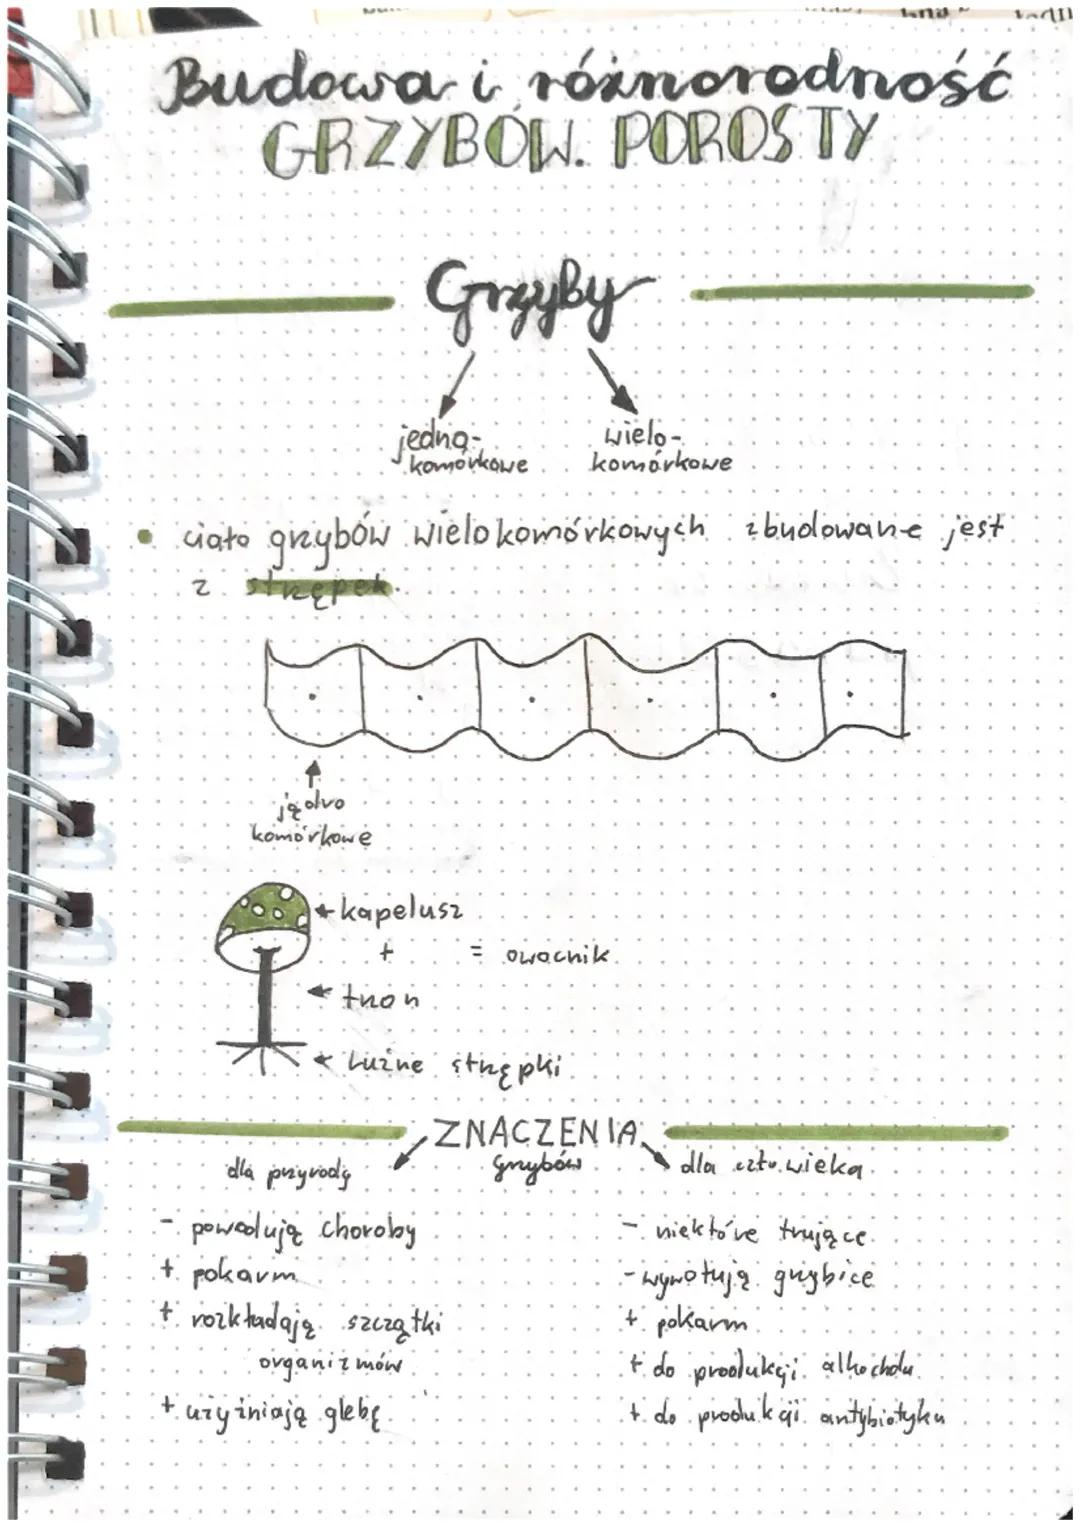 Budowa i różnorodność
GRZYBÓW. POROSTY
Grzyby
jedno-
komórkowe
wielo-
komórkowe
• ciało grzybów wielokomórkowych zbudowane jest
z strzępek.
jądro
komórkowe
kapelusz
+ = owocnik
trzon
luźne strzępki
ZNACZENIA
grzybów
dla przyrody
dla człowieka
- powodują choroby
+ pokarm
+ rozkładają szczątki
organizmów
+ użyźniają glebę
- niektóre trujące
- wywołują grzybice
+ pokarm
+ do produkcji alkoholu
+ do produkcji antybiotyku